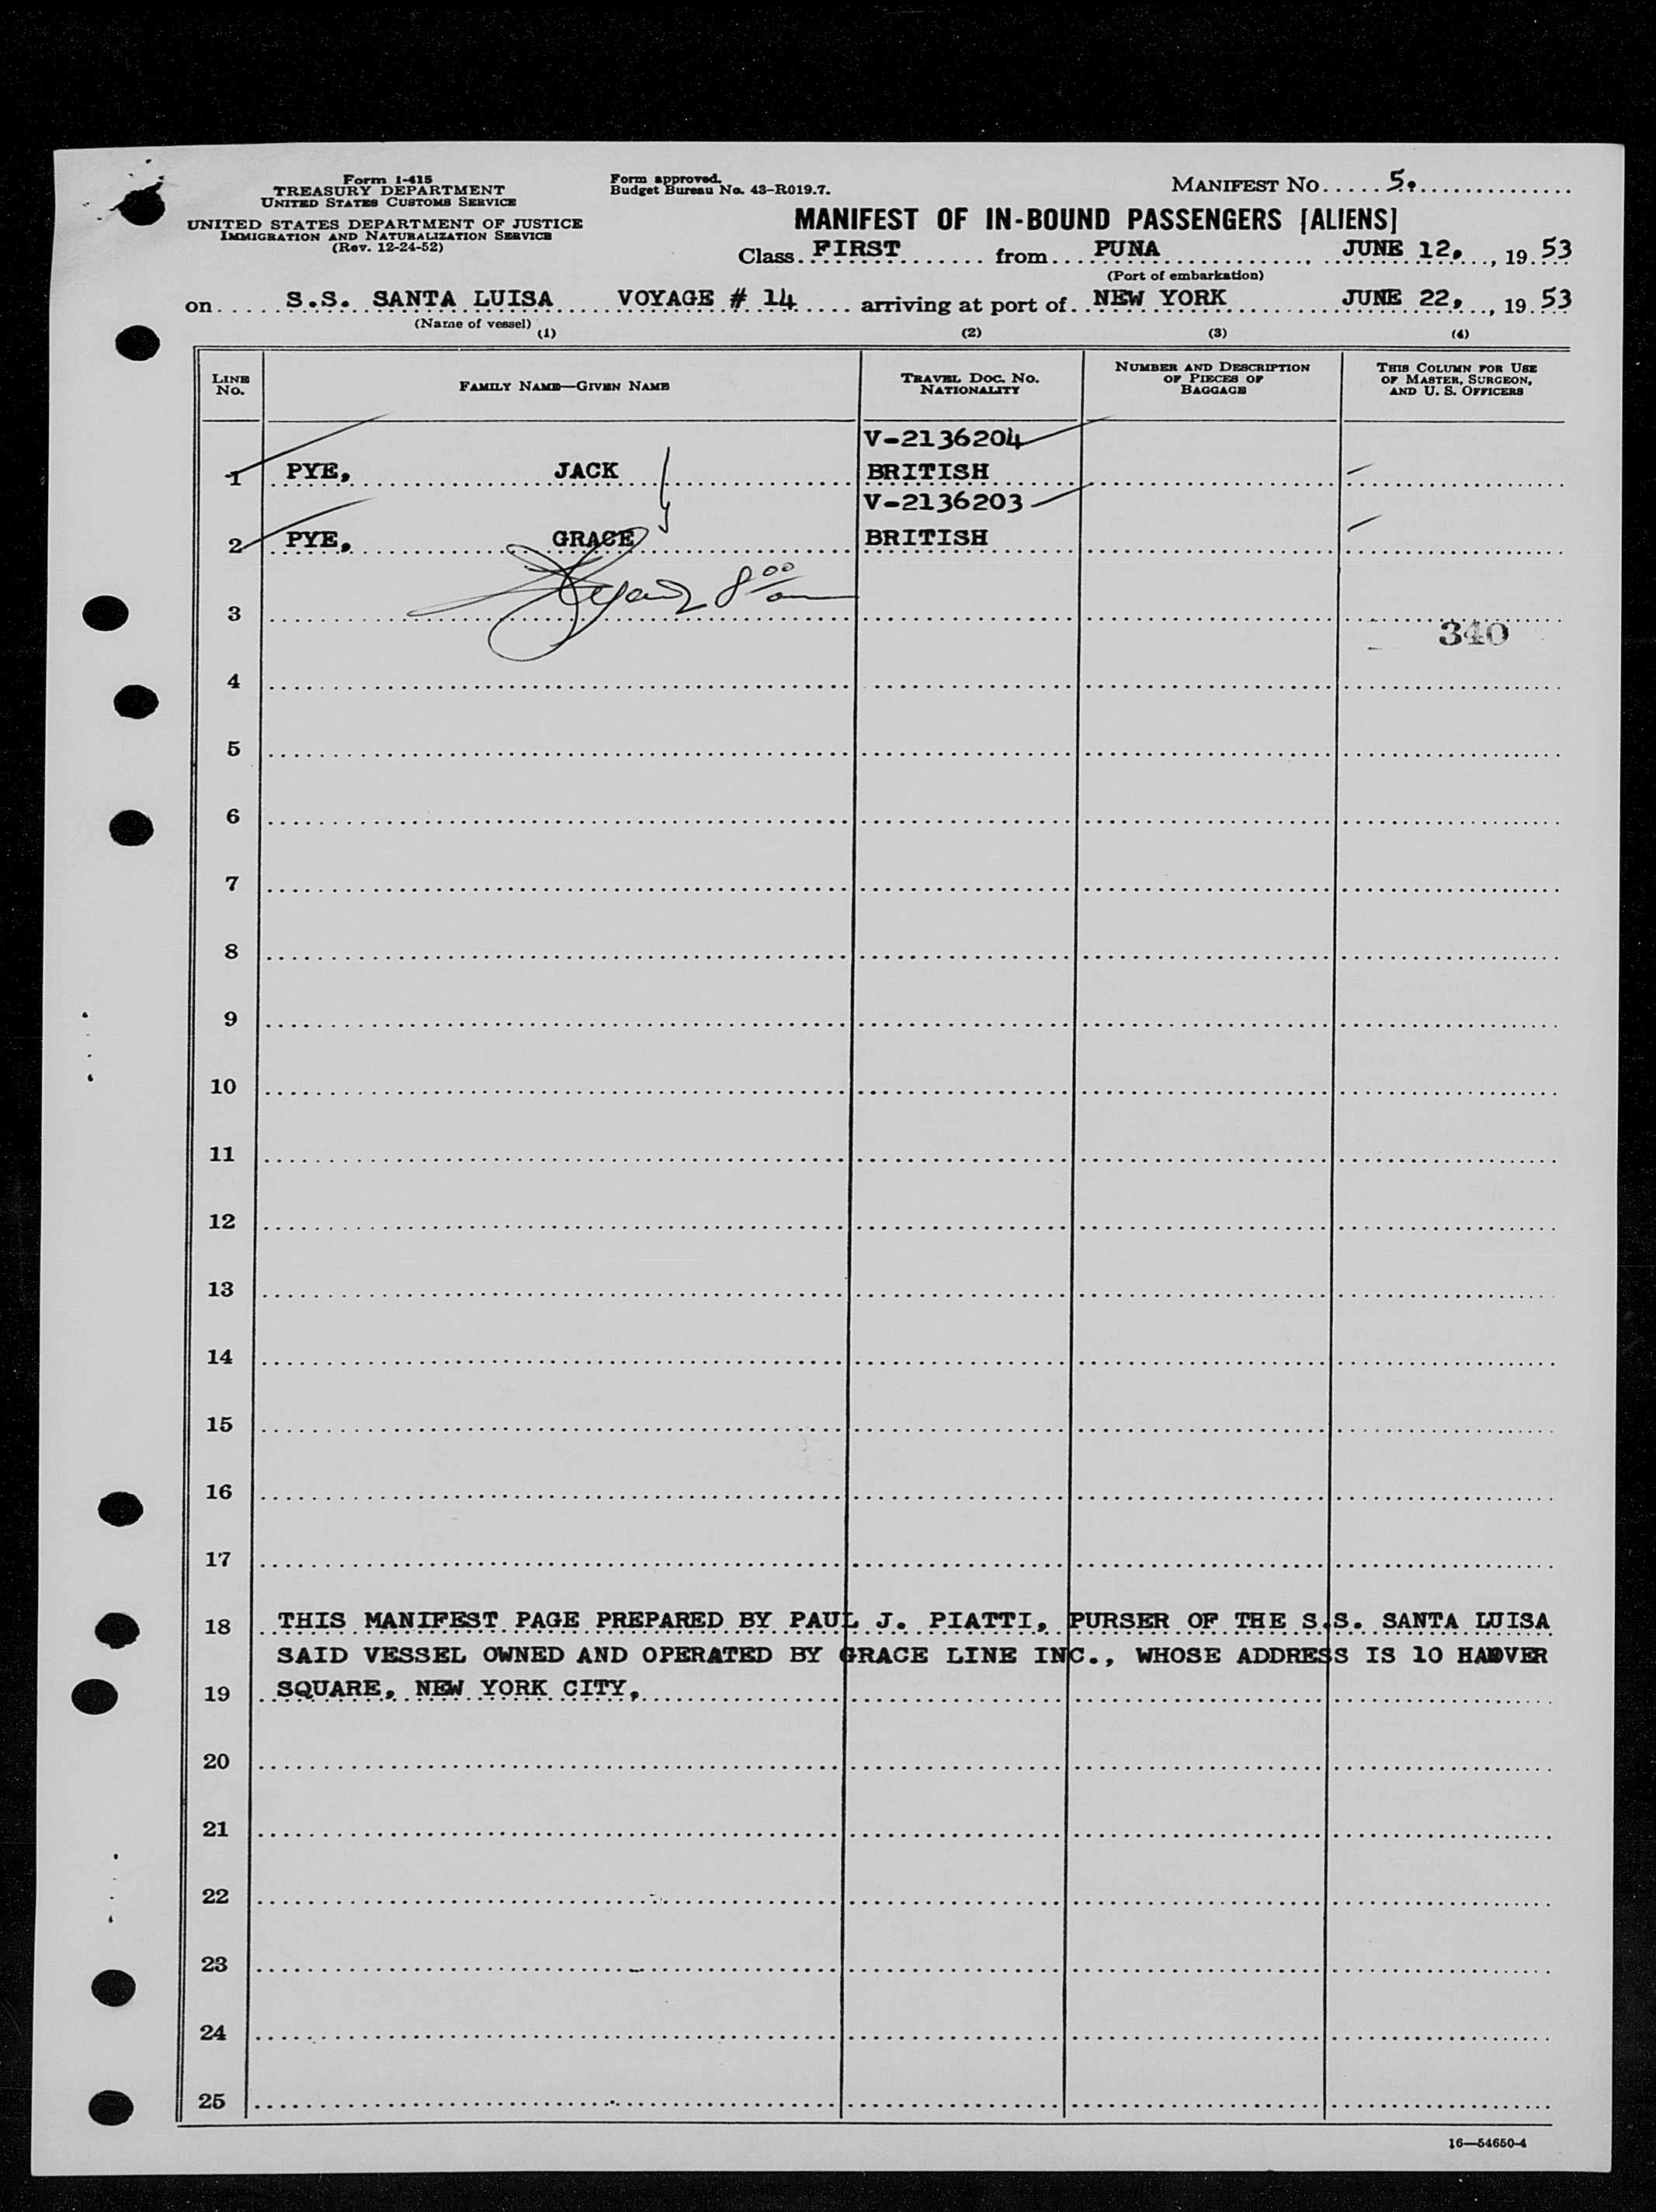 Form I-415
TREASURY DEPARTMENT
UNITED STATES CUSTOMS SERVICE
UNITED STATES DEPARTMENT OF JUSTICE
IMMIGRATION AND NATURALIZATION SERVICE
(Rev. 12-24-52)
Form approved.
Budget Bureau No. 43-R019.7.
MANIFEST NO. 5.
MANIFEST OF IN-BOUND PASSENGERS [ALIENS]
Class FIRST from PUNA JUNE 12, , 19 53
(Port of embarkation)
on S.S. SANTA LUISA VOYAGE # 14 arriving at port of NEW YORK JUNE 22, , 19 53
(Name of vessel)
(1) (2) (3) (4)
LINE NO. FAMILY NAME—GIVEN NAME TRAVEL DOC. NO. NATIONALITY NUMBER AND DESCRIPTION OF PIECES OF BAGGAGE THIS COLUMN FOR USE OF MASTER, SURGEON, AND U. S. OFFICERS
V-2136204
1 PYE, JACK BRITISH
V-2136203
2 PYE, GRACE BRITISH
8 00
3
340
4
5
6
7
8
9
10
11
12
13
14
15
16
17
18 THIS MANIFEST PAGE PREPARED BY PAUL J. PIATTI, PURSER OF THE S.S. SANTA LUISA
SAID VESSEL OWNED AND OPERATED BY GRACE LINE INC., WHOSE ADDRESS IS 10 HANOVER
19 SQUARE, NEW YORK CITY.
20
21
22
23
24
25
16—54650-4